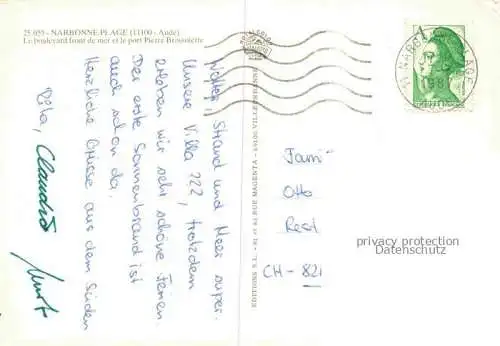 25 055 - NARBONNE-PLAGE (11100 - Aude)
Le boulevard front de mer et le port Pierre Brossolette
Wetter, Strand und Meer super.
Unsere Villa ???, trotzdem
erleben wir sehr schöne Ferien.
Der erste Sonnenbrand ist
auch schon da.
Herzliche Grüsse aus dem Süden
Rita, Claudia
Kurt
EDITIONS S.L.
RUE MAGENTA
VILLEURBANNE
NARBONNE PLAGE
Fami
Otto
Rest
CH - 821
privacy protection
Datenschutz